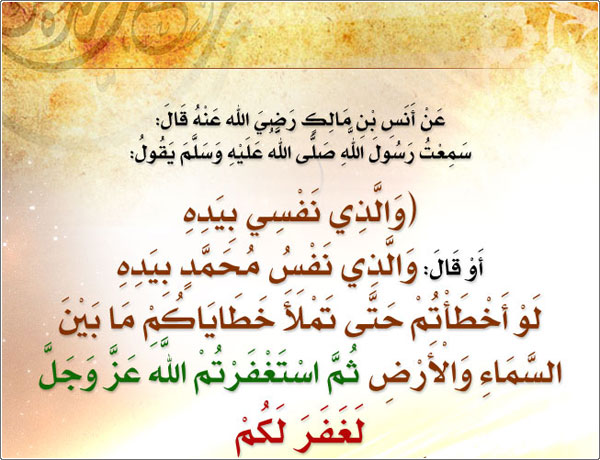 عَنْ أَنَسِ بْنِ مَّالِكٍ رَضِيَ الله عَنْهُ قَالَ:
سَمِعْتُ رَسُولَ اللهِ صَلَّى اللهُ عَلَيْهِ وَسَلَّمَ يَقُولُ:
(وَالَّذِي نَفْسِي بِيَدِهِ
أَوْ قَالَ: وَالَّذِي نَفْسُ مُحَمَّدٍ بِيَدِهِ
لَوْ أَخْطَأْتُمْ حَتَّى تَمْلَأَ خَطَايَاكُمْ مَا بَيْنَ
السَّمَاءِ وَالْأَرْضِ ثُمَّ اسْتَغْفَرْتُمْ اللَّهَ عَزَّ وَجَلَّ
لَغَفَرَ لَكُمْ